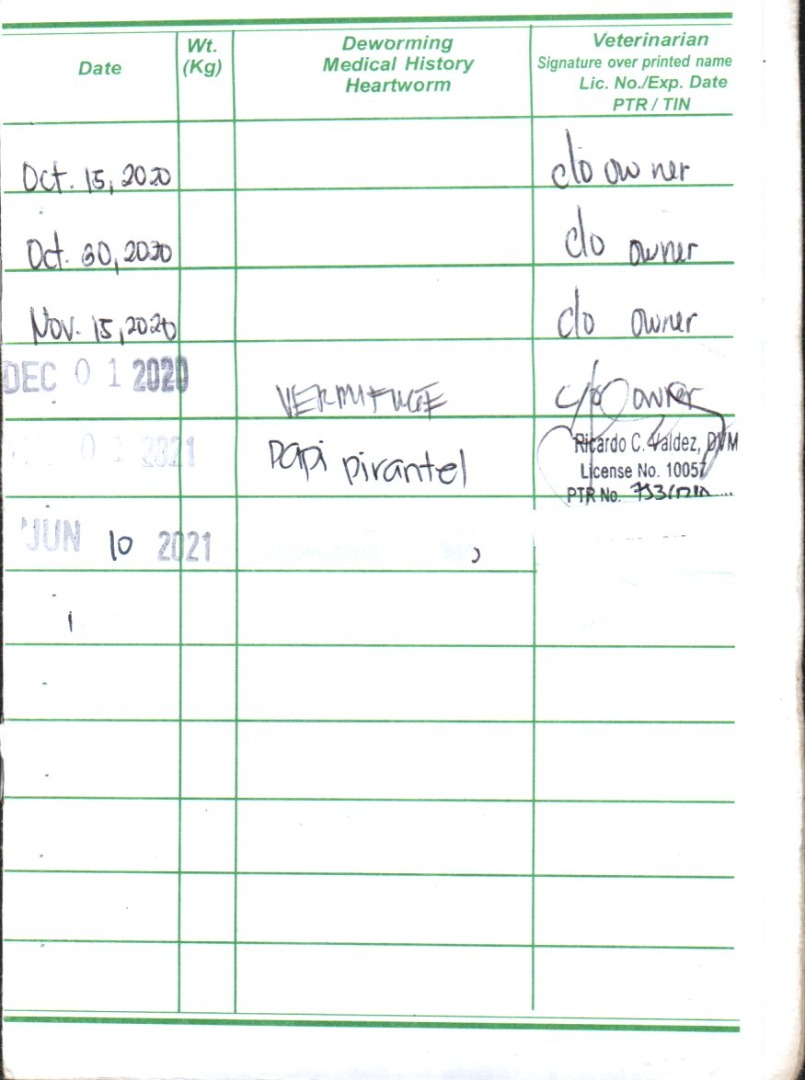 Date
Wt.
(Kg)
Deworming
Medical History
Heartworm
Veterinarian
Signature over printed name
Lic. No./Exp. Date
PTR / TIN
Oct. 15, 2020
c/o owner
Oct. 30, 2020
c/o owner
Nov. 15, 2020
c/o owner
DEC 01 2020
VERMIFUGE
c/o owner
01 2021
Papi pirantel
Ricardo C. Valdez, DVM
License No. 10057
PTR No.
JUN 10 2021